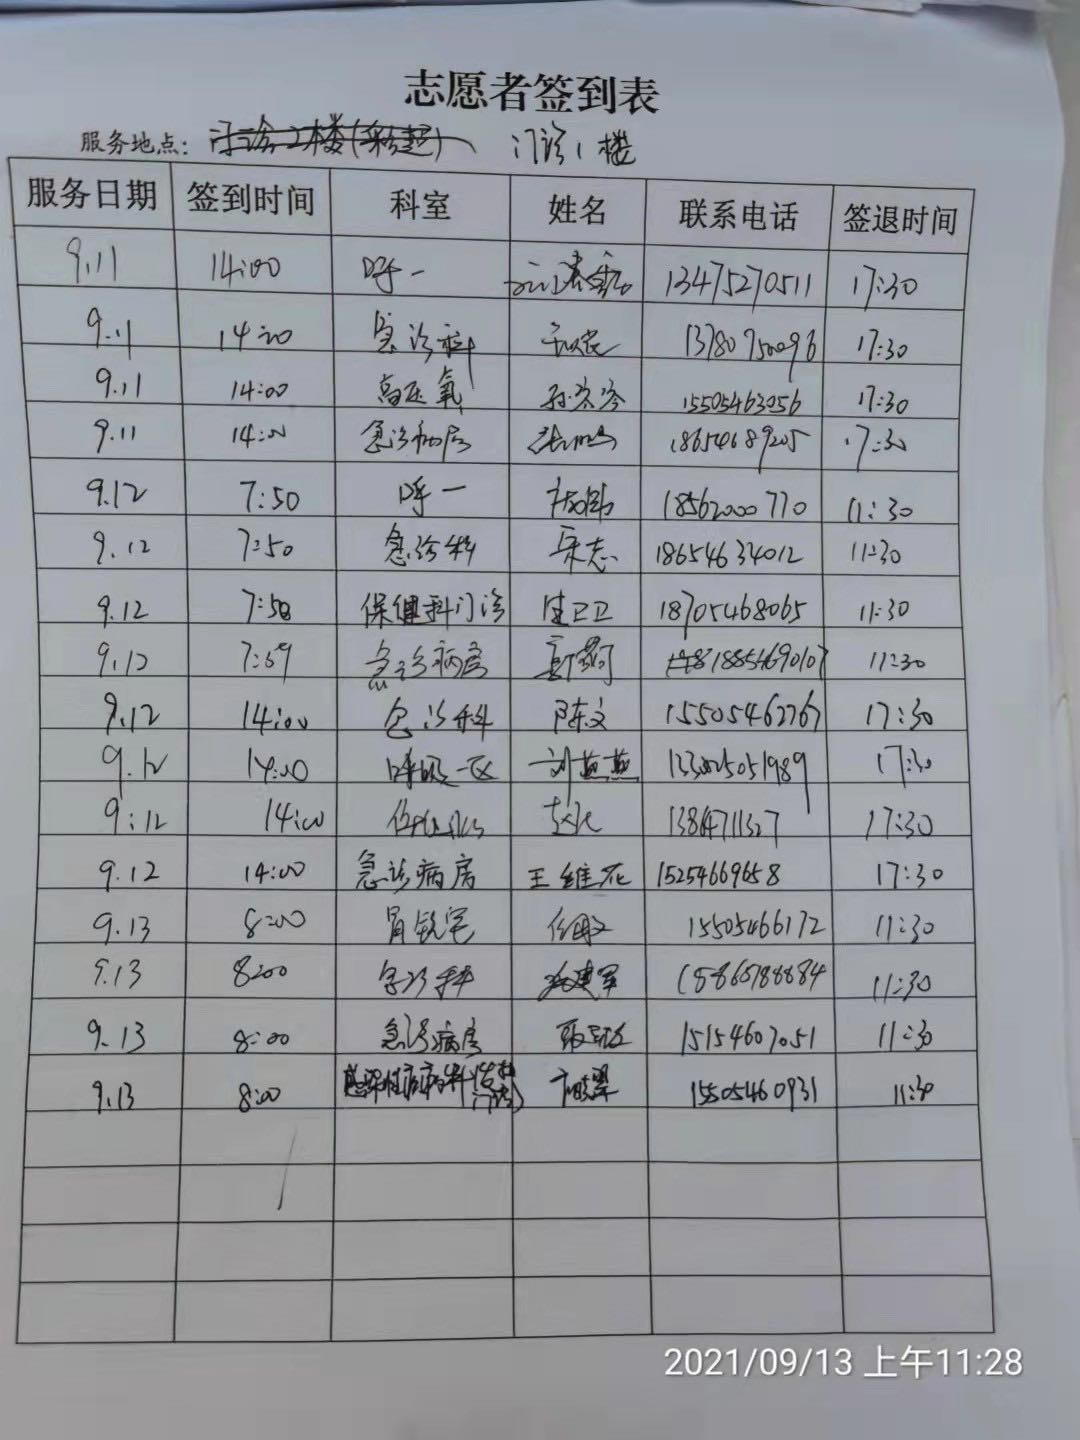 志愿者签到表
服务地点: 门诊2楼(彩超) 门诊1楼
服务日期 签到时间 科室 姓名 联系电话 签退时间
9.11 14:00 呼一 13475270511 17:30
9.11 14:00 急诊科 13780750096 17:30
9.11 14:00 高压氧 15505463056 17:30
9.11 14:00 急诊病房 18654689205 17:30
9.12 7:50 呼一 18562000770 11:30
9.12 7:50 急诊科 宋志 18654634012 11:30
9.12 7:50 保健科门诊 卫卫 18705468065 11:30
9.12 7:59 急诊病房 18854690107 11:30
9.12 14:00 急诊科 陈文 15505462767 17:30
9.12 14:00 呼吸一区 刘燕燕 17:30
9:12 14:00 13864711327 17:30
9.12 14:00 急诊病房 王维花 15254669658 17:30
9.13 8:00 胃镜室 15505466172 11:30
9.13 8:00 急诊科 建军 15865188884 11:30
9.13 8:00 急诊病房 15154607051 11:30
9.13 8:00 感染性疾病科 15505460931 11:30
2021/09/13 上午11:28